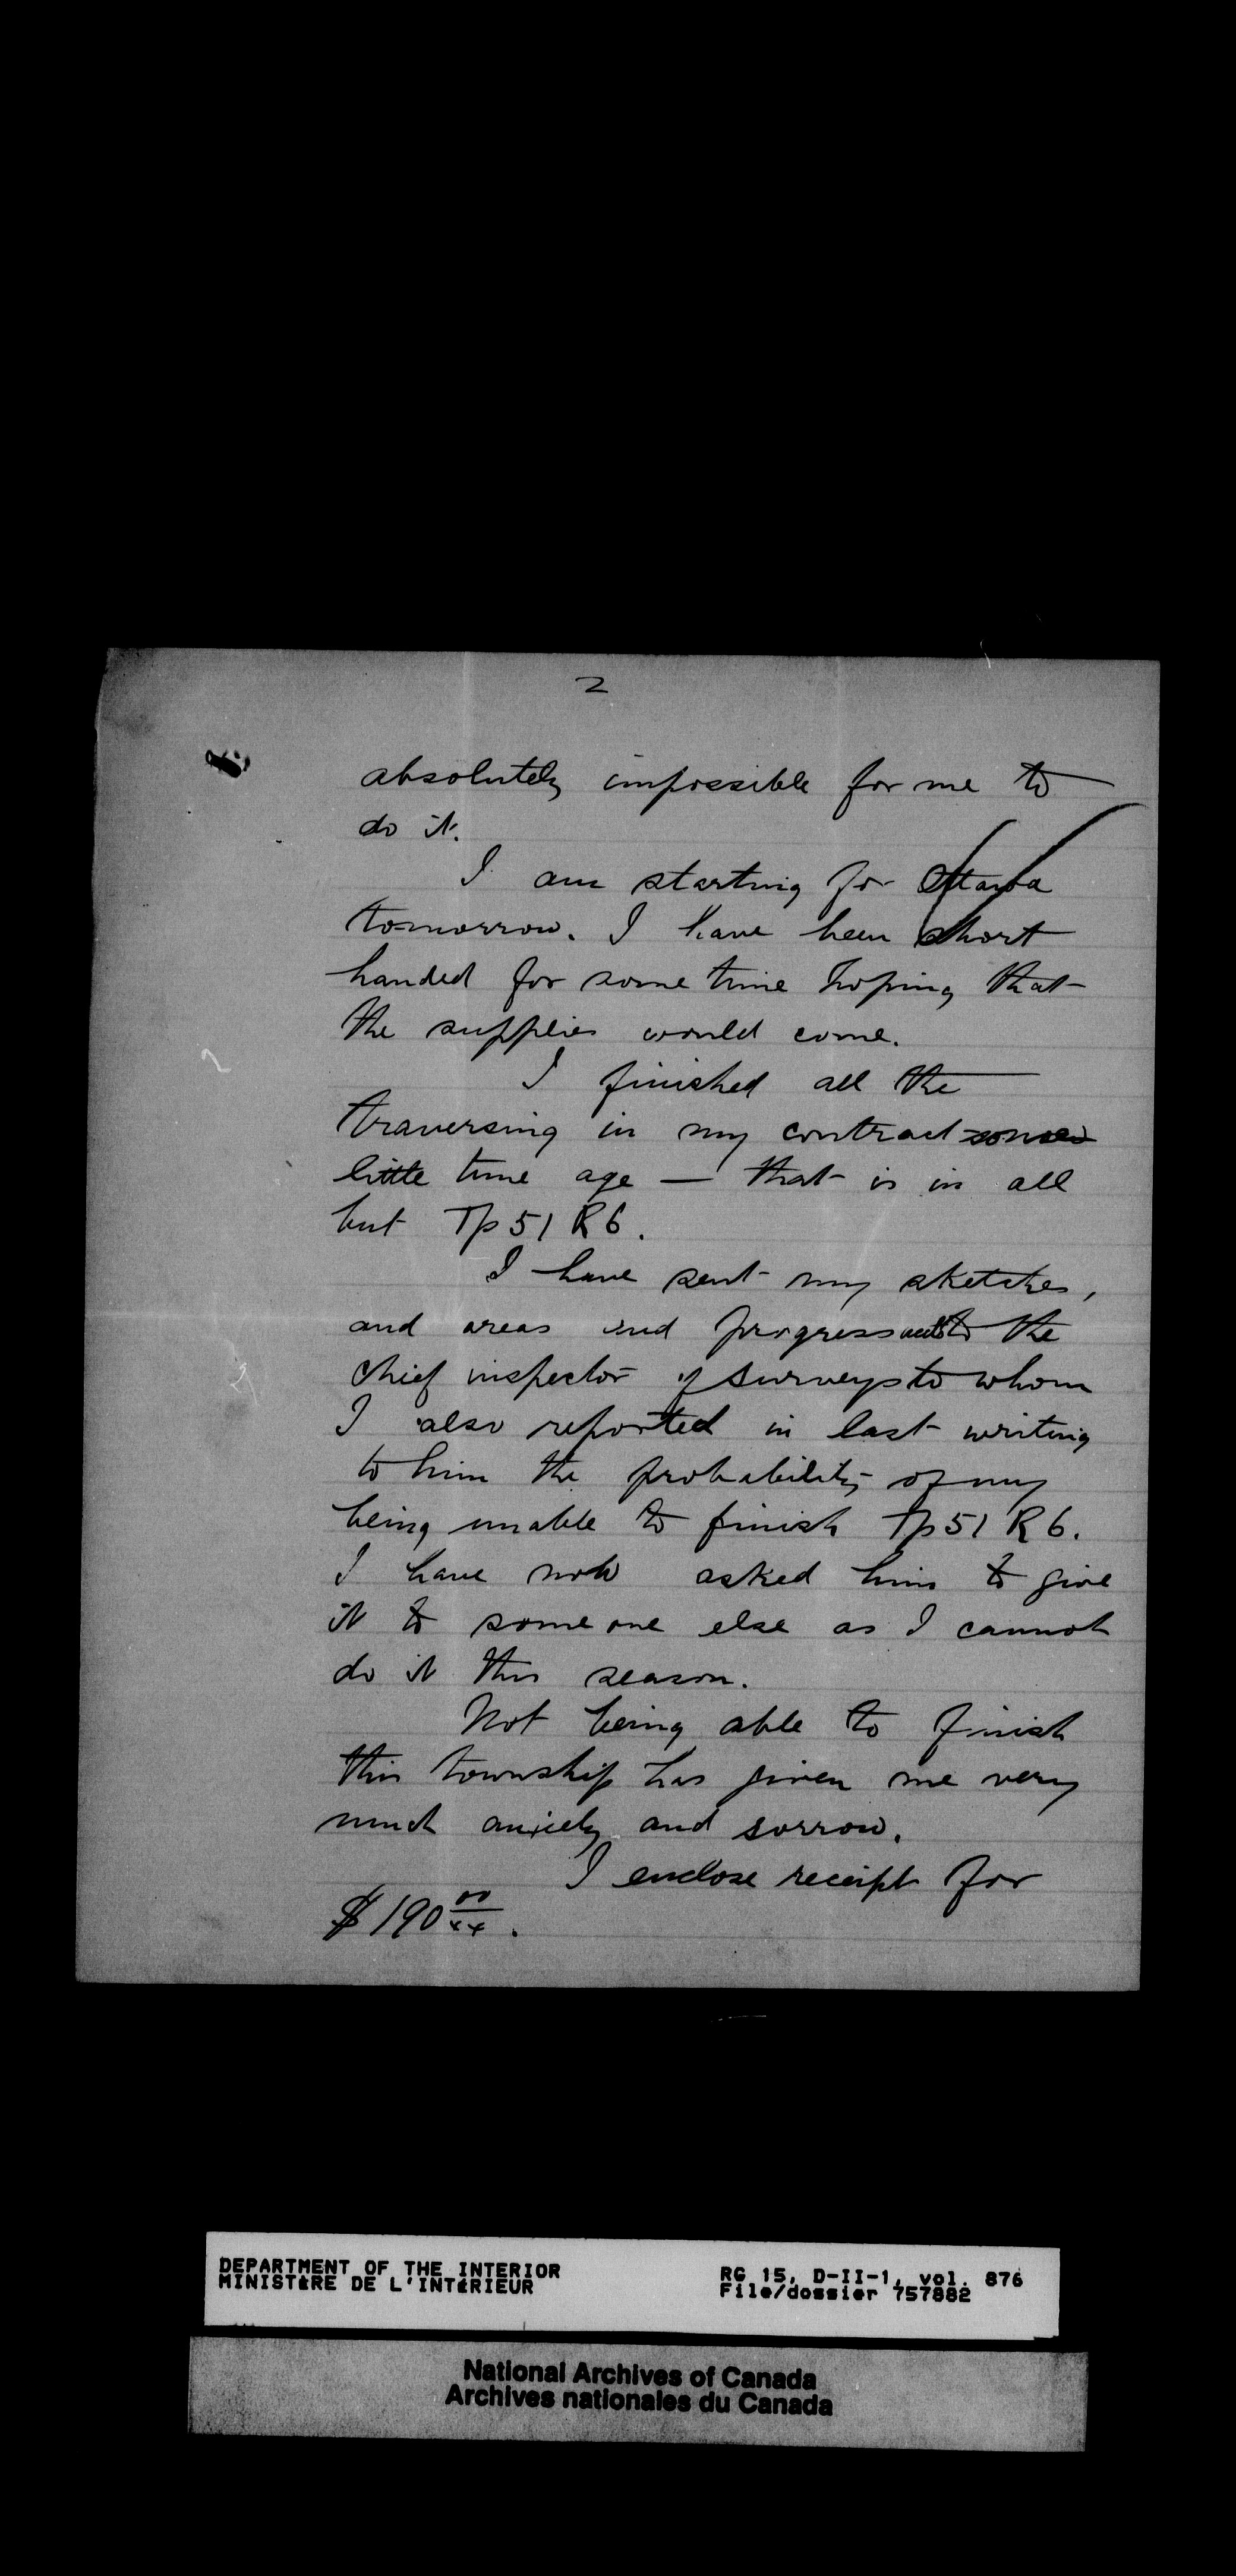 2
absolutely impossible for me to
do it.
I am starting for Ottawa
tomorrow. I have been short
handed for some time hoping that
the supplies would come.
I finished all the
traversing in my contract some
little time ago — that is in all
but Tp 51 R 6.
I have sent my sketches,
and areas and progress to the
chief inspector of surveys to whom
I also reported in last writing
to him the probability of my
being unable to finish Tp 51 R 6.
I have now asked him to give
it to some one else as I cannot
do it this season.
Not being able to finish
this township has given me very
much anxiety and sorrow.
I enclose receipt for
$190 00/xx.
DEPARTMENT OF THE INTERIOR
MINISTÈRE DE L'INTÉRIEUR
RG 15, D-II-1, vol. 876
File/dossier 757882
National Archives of Canada
Archives nationales du Canada